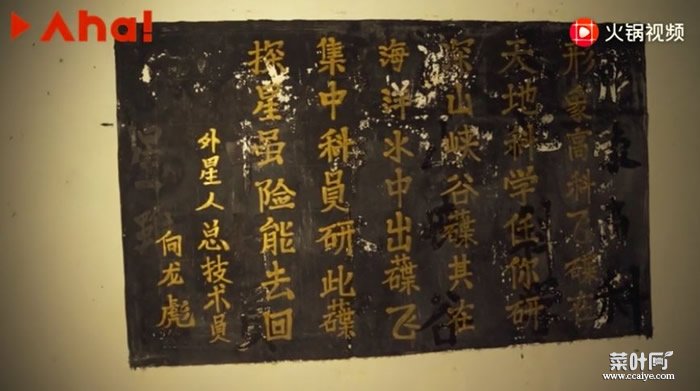 Aha!
火锅视频
形象高科飞碟在
天地科学任你研
深山峡谷蹀其在
海洋水中出蹀飞
集中科员研此蹀
探星虽险能去回
外星人总技术员
向龙彪
菜叶网
www.ccaiye.com